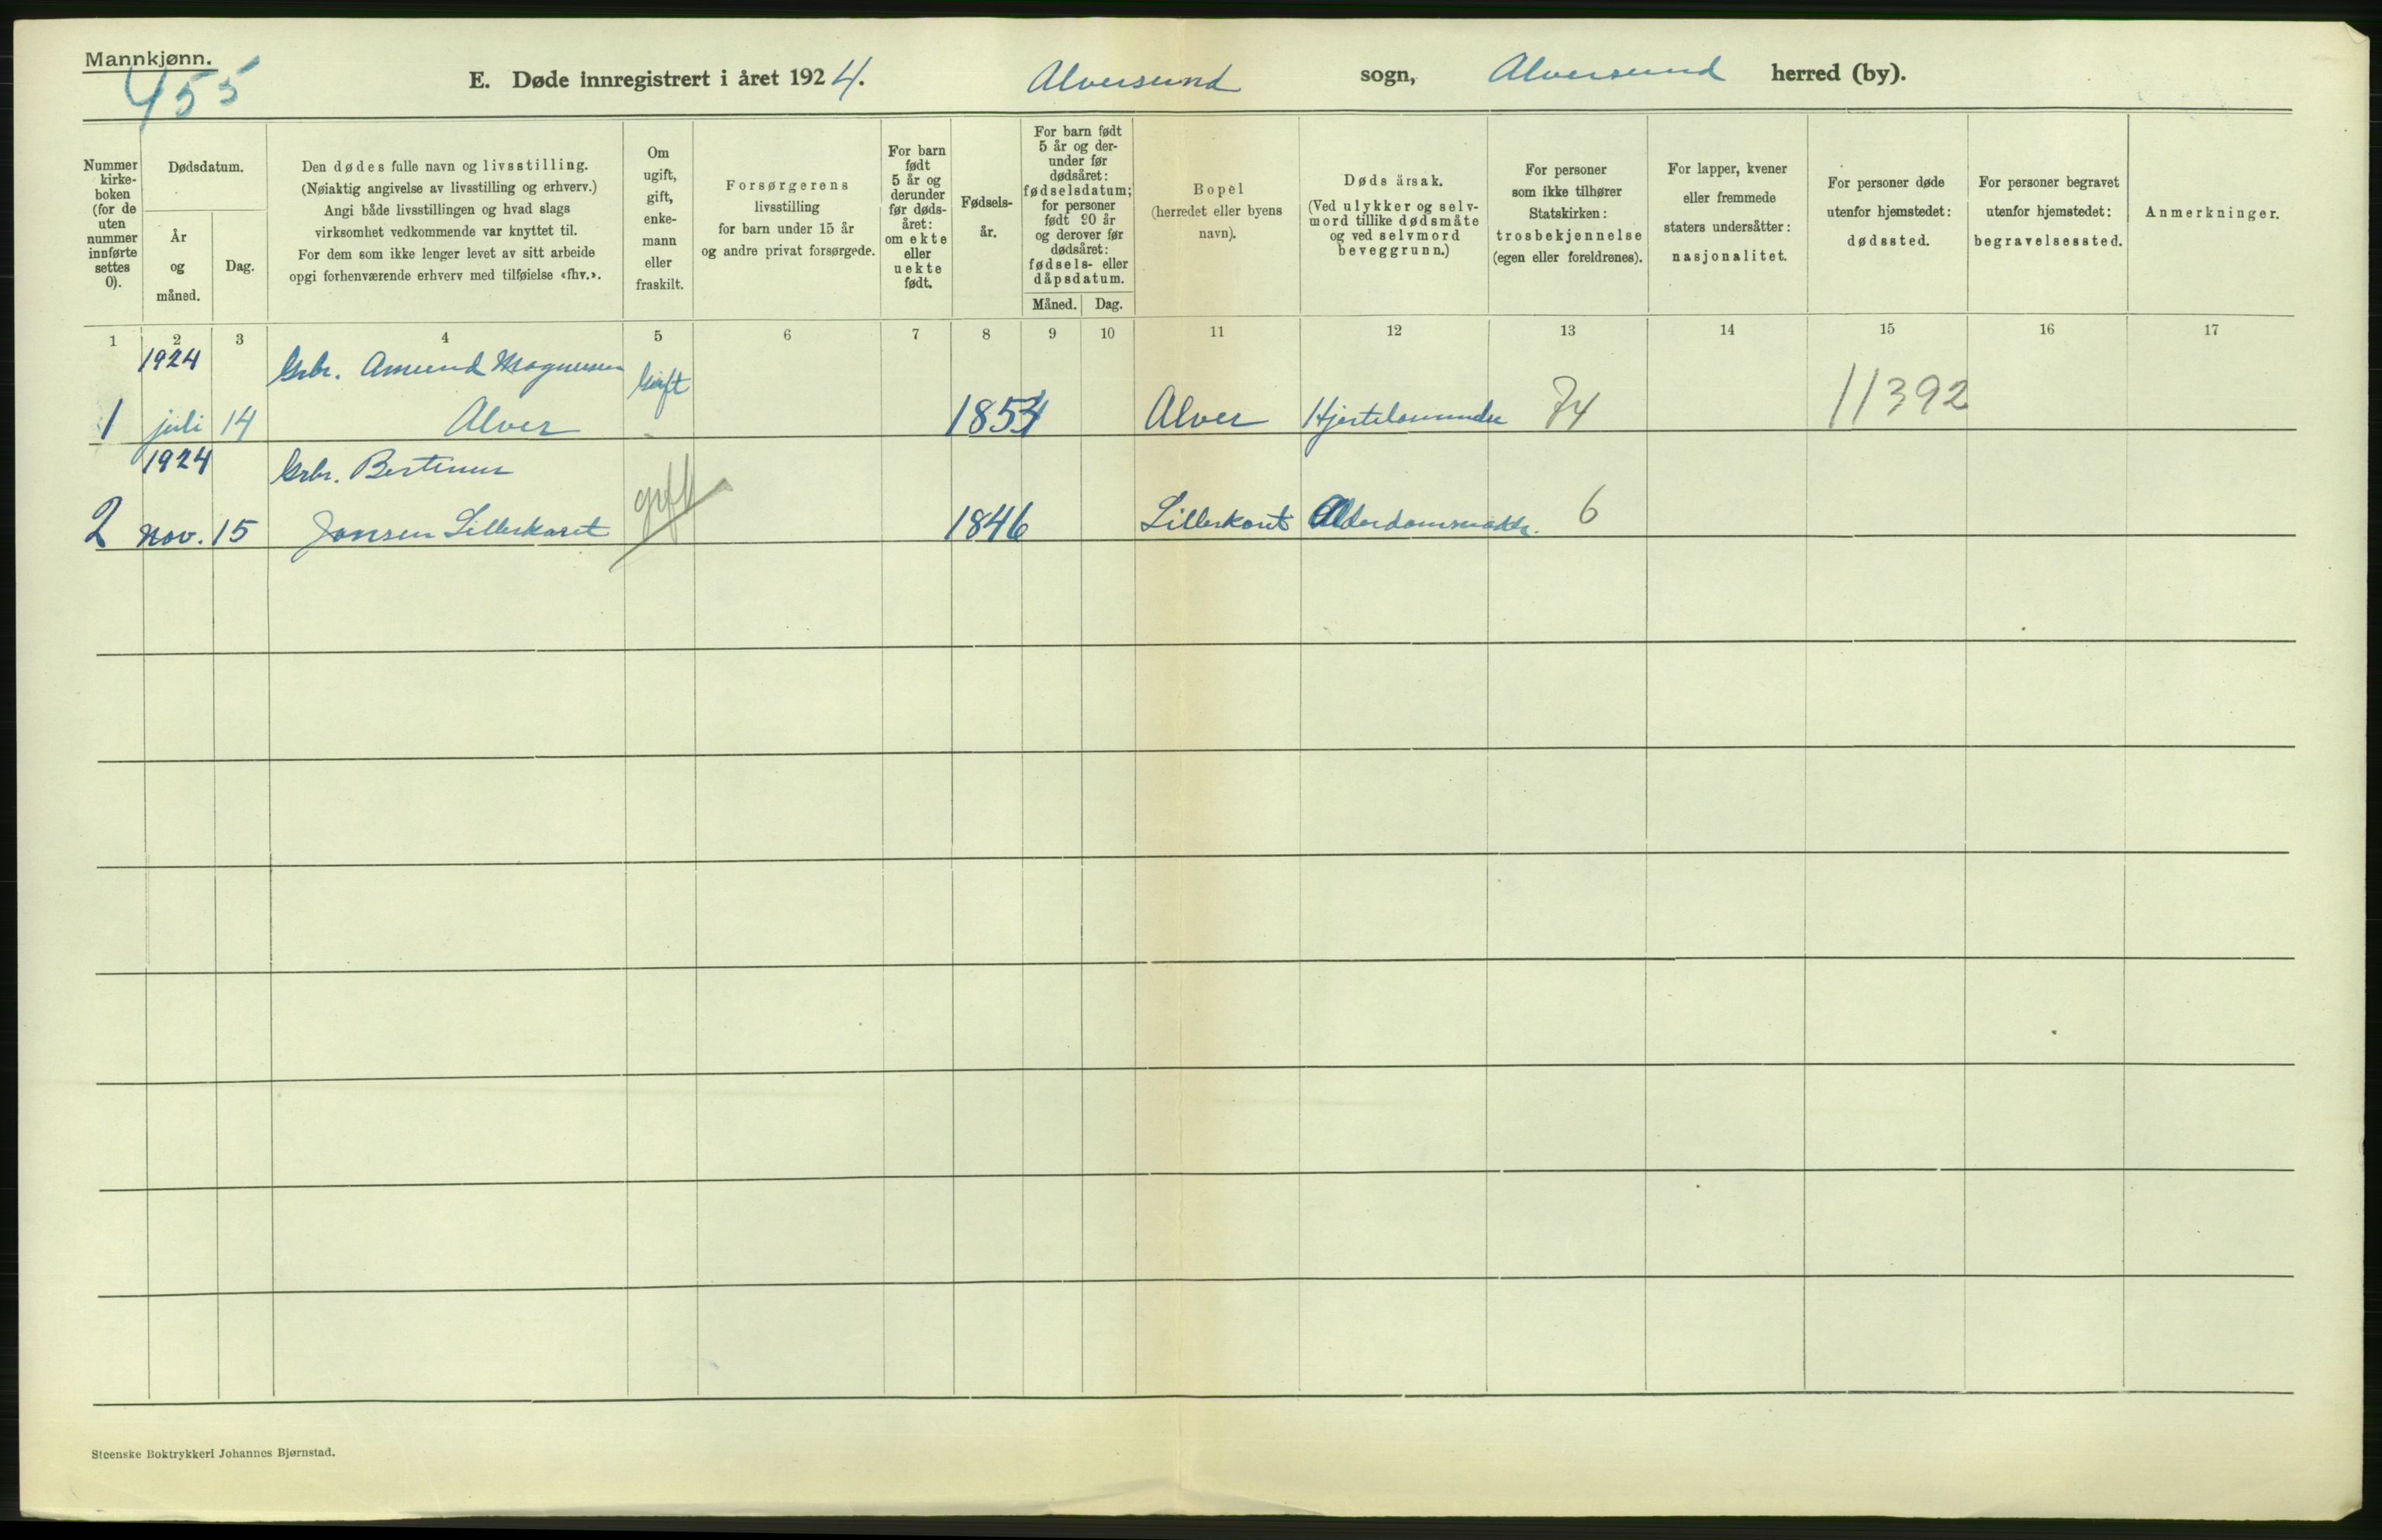 Mannkjønn.
455
E. Døde innregistrert i året 1924. Alversund sogn, Alversund herred (by).
Nummer kirke-boken (for de uten nummer innførte settes 0).
Dødsdatum.
År og måned.
Dag.
Den dødes fulle navn og livsstilling.
(Nøiaktig angivelse av livsstilling og erhverv.)
Angi både livsstillingen og hvad slags
virksomhet vedkommende var knyttet til.
For dem som ikke lenger levet av sitt arbeide
opgi forhenværende erhverv med tilføielse «fhv.».
Om ugift, gift, enke-mann eller fraskilt.
Forsørgerens
livsstilling
for barn under 15 år
og andre privat forsørgede.
For barn født 5 år og derunder før døds-året: om ekte eller uekte født.
Fødsels-år.
For barn født 5 år og der-under før dødsåret: fødselsdatum; for personer født 90 år og derover før dødsåret: fødsels- eller dåpsdatum.
Måned. Dag.
Bopel
(herredet eller byens navn).
Dødsårsak.
(Ved ulykker og selv-mord tillike dødsmåte og ved selvmord beveggrunn.)
For personer som ikke tilhører Statskirken: trosbekjennelse (egen eller foreldrenes).
For lapper, kvener eller fremmede staters undersåtter: nasjonalitet.
For personer døde utenfor hjemstedet: dødssted.
For personer begravet utenfor hjemstedet: begravelsessted.
Anmerkninger.
1 2 3 4 5 6 7 8 9 10 11 12 13 14 15 16 17
1924 Grbr. Amund Magnussen Gift
1 juli 14 Alver 1854 Alver Hjertelammelse 74 11392
1924 Grbr. Bertinus gift
2 nov. 15 Jansen Lilleskaret 1846 Lilleskaret Alderdomssvakh. 6
Steenske Boktrykkeri Johannes Bjørnstad.